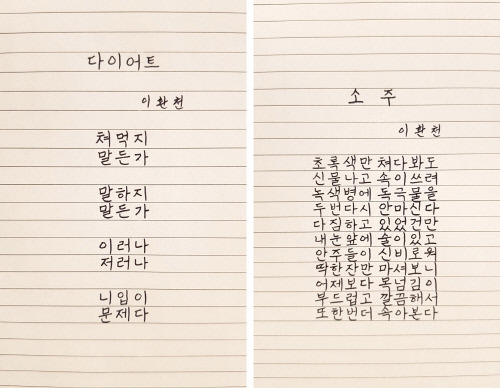 다이어트
이환천
쳐먹지
말든가
말하지
말든가
이러나
저러나
니입이
문제다
소 주
이환천
초록색만 쳐다봐도
신물나고 속이쓰려
녹색병에 독극물을
두번다시 안마신다
다짐하고 있었건만
내눈앞에 술이있고
안주들이 신비로워
딱한잔만 마셔보니
어제보다 목넘김이
부드럽고 깔끔해서
또한번더 속아본다